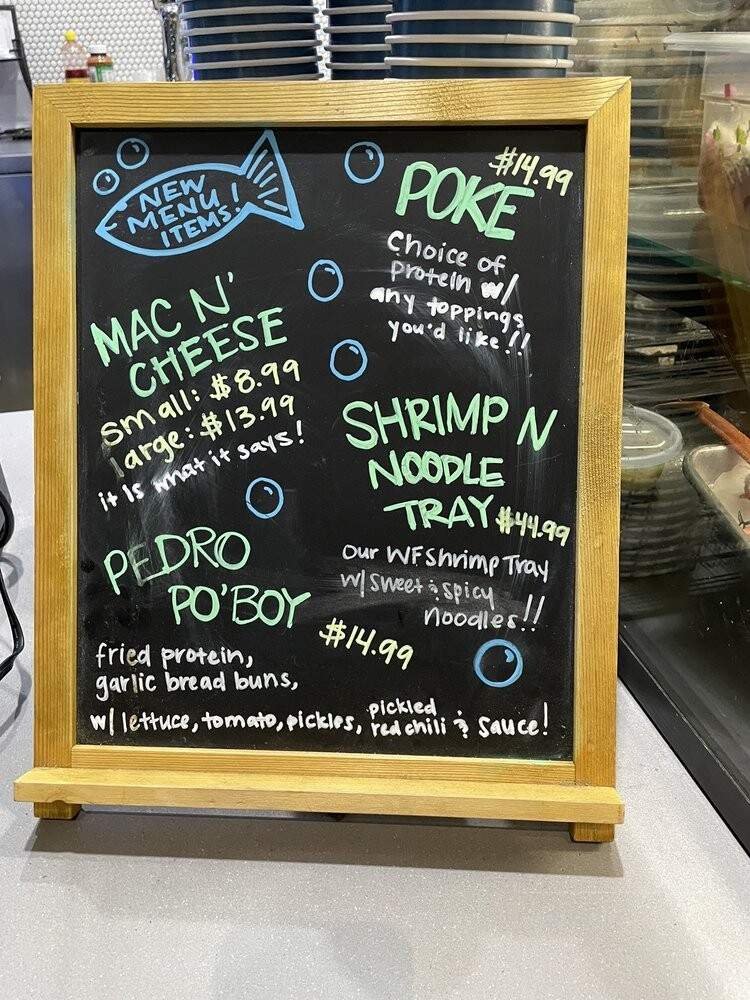 NEW
MENU !
ITEMS!
MAC N'
CHEESE
small: $8.99
large: $13.99
it is what it says!
PEDRO
PO'BOY
$14.99
fried protein,
garlic bread buns,
w/ lettuce, tomato, pickles, pickled red chili & sauce!
$14.99
POKE
Choice of
protein w/
any toppings
you'd like!!
SHRIMP N
NOODLE
TRAY $44.99
our WF Shrimp Tray
w/ sweet & spicy
noodles!!